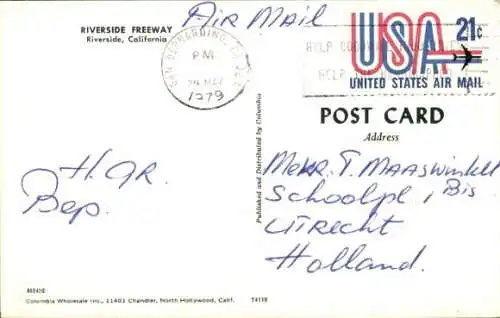 RIVERSIDE FREEWAY
Riverside, California
Air Mail
SAN BERNARDINO, CA
PM
1979
USA 21c
UNITED STATES AIR MAIL
HELP
HELP
POST CARD
Address
H. GR.
Bep.
Published and Distributed by Columbia
Mekr. T. Maaswinkel
Schoolpl, Bis
UTRECHT
Holland.
Columbia Wholesale Inc., 11401 Chandler, North Hollywood, Calif.